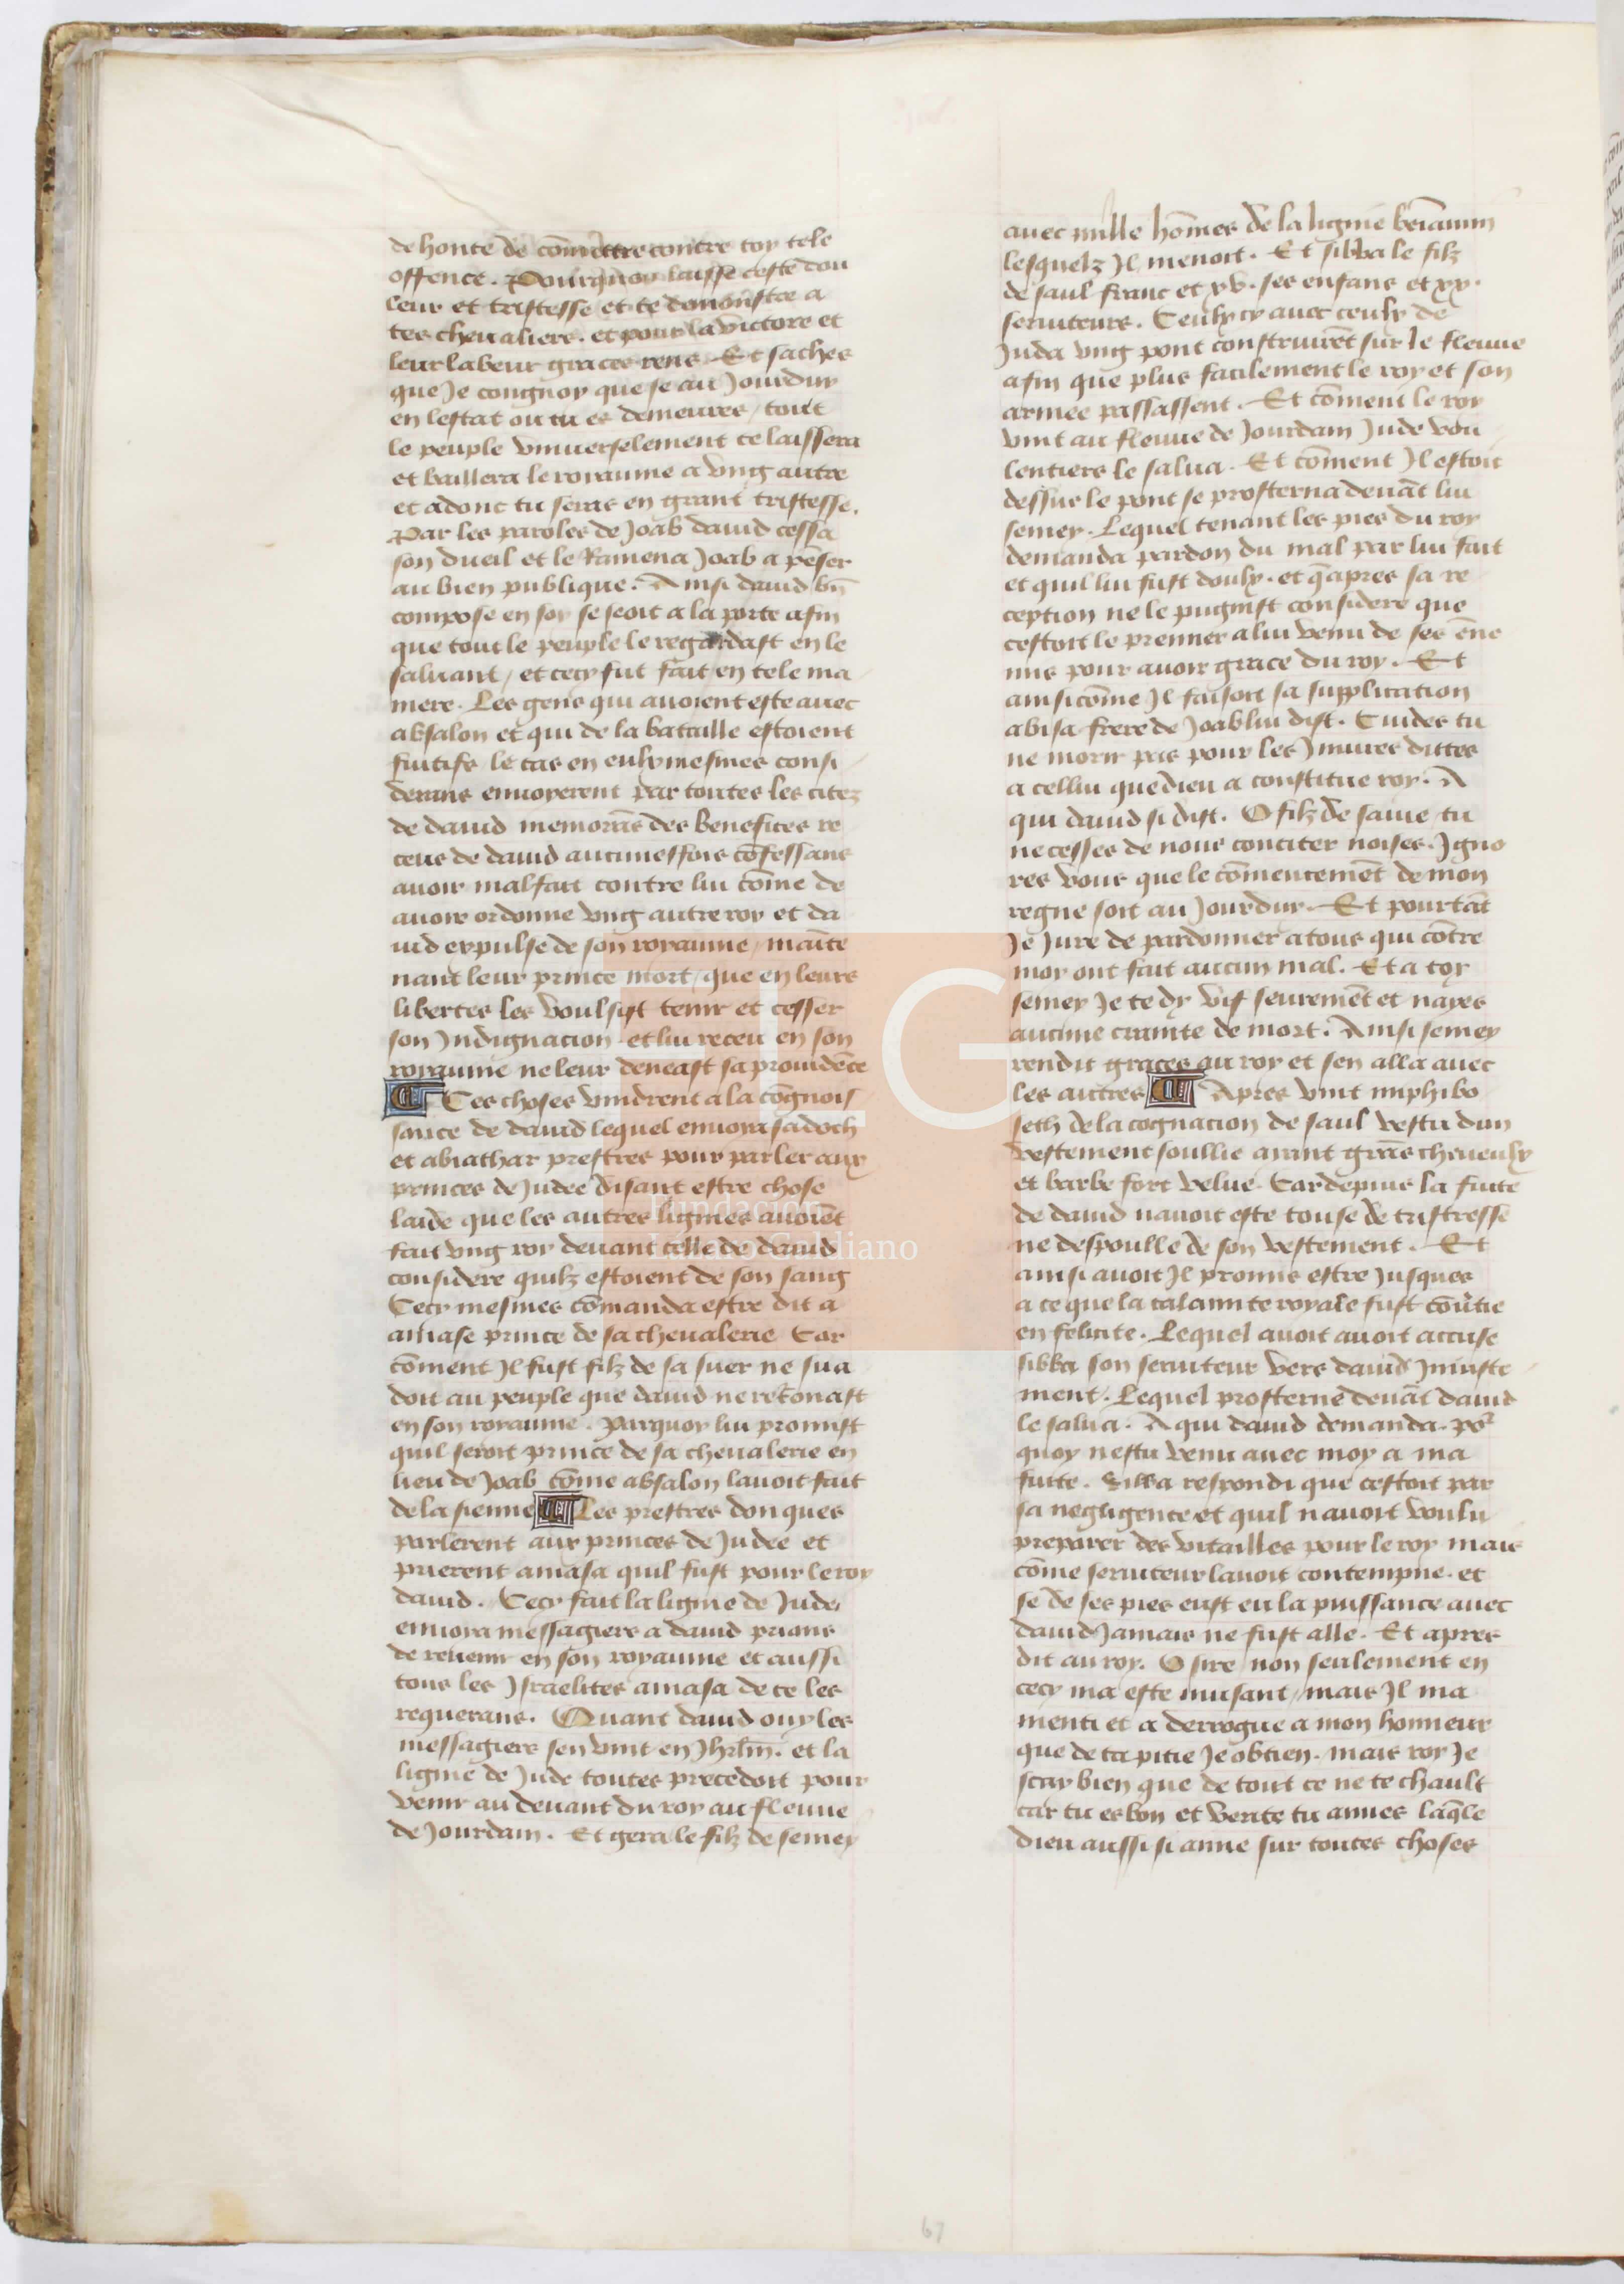 de honte de cōmettre contre toy tele
offence. Pourquoy laisse ceste dou
leur et tristesse et te demonstre a
tes cheualiers. et pour la victore et
leur labeur graces rens. Et saches
que Je congnoy que se au Jourduy
en lestat ou tu es demeures / tout
le peuple vniuerselement te laissera
et baillera le royaume a vng autre
et adonc tu seras en grant tristesse.
Par les paroles de Joab dauid cessa
son dueil et le Ramena Joab a pēser
au bien publique. Ainsi dauid bn̄
compose en soy se seoit a la porte afin
que tout le peuple le regardast en le
saluant / et cecy fut fait en tele ma
niere. Les gens qui auoient este auec
absalon et qui de la bataille estoient
fuitifs le cas en eulx mesmes consi
derans enuoyerent par toutes les citez
de dauid memorās des benefices re
ceus de dauid aucunesfois cōfessans
auoir malfait contre lui cōme de
auoir ordonne vng autre roy et da
uid expulse de son royaume / maīte
nant leur prince mort / que en leurs
libertes les voulsist tenir et cesser
son Indignacion et lui receu en son
royaume ne leur deneast sa prouidēce
Ces choses vindrent a la cōgnois
sance de dauid lequel enuoya sadoch
et abiathar prestres pour parler aux
princes de Judee disant estre chose
laide que les autres lignies auoiēt
fait vng roy deuant celle de dauid
considere quilz estoient de son sang
Cecy mesmes cōmanda estre dit a
amase prince de sa cheualerie Car
cōment Il fust filz de sa suer ne sua
doit au peuple que dauid ne retōnast
en son royaume. Parquoy lui promist
quil seroit prince de sa cheualerie en
lieu de Joab cōme absalon lauoit fait
de la sienne Les prestres donques
parlerent aux princes de Judee et
prierent amasa quil fust pour le roy
dauid. Cecy fait la lignie de Jude
enuoya messagiers a dauid prians
de reuenir en son royaume et aussi
tous les Israelites amasa de ce les
requerans. Quant dauid ouy les
messagiers sen vint en Jhrlm̄. et la
lignie de Jude toutes precedoit pour
venir au deuant du roy au fleuue
de Jourdain. Et gera le filz de semey
auec mille hōmes de la lignie beiamin
lesquelz Il menoit. Et sibba le filz
de saul franc et xv. ses enfans et xx.
seruiteurs. Ceulx cy auec ceulx de
Juda vng pont construirēt sur le fleuue
afin que plus facilement le roy et son
armee passassent. Et cōment le roy
vint au fleuue de Jourdain Jude vou
lentiers le salua. Et cōment Il estoit
dessus le pont se prosterna deuāt lui
semey. Lequel tenant les pies du roy
demanda pardon du mal par lui fait
et quil lui fust doulx. et q̄ apres sa re
ception ne le pugnist considere que
cestoit le premier a lui venu de ses ēne
mis pour auoir grace du roy. Et
ainsi cōme Il faisoit sa supplication
abisa frere de Joab lui dist. Cuides tu
ne morir pas pour les Iniures dittes
a cellui que dieu a constitue roy. A
qui dauid si dist. O filz de saiue tu
ne cesses de nous conciter noises. Igno
res vous que le cōmencemēt de mon
regne soit au Jourduy. Et pourtāt
Je Jure de pardonner a tous qui cōtre
moy ont fait aucun mal. Et a toy
semey Je te dy vif seuremēt et nayes
aucune crainte de mort. Ainsi semey
rendit graces au roy et sen alla auec
les autres Apres vint miphibo
seth de la cognacion de saul vestu dun
vestement soullie ayant grās cheueulx
et barbe fort velue. Car depuis la fuite
de dauid nauoit este touse de tristresse
ne despoulle de son vestement. Et
ainsi auoit Il promis estre Jusques
a ce que la calamite royale fust cōūtie
en felicite. Lequel auoit auoit accuse
sibba son seruiteur vers dauid Iniuste
ment. Lequel prosterne deuāt dauid
le salua. A qui dauid demanda. po͛
quoy nestu venu auec moy a ma
fuite. Sibba respondi que cestoit par
sa negligence et quil nauoit voulu
preparer des vitailles pour le roy mais
cōme seruiteur lauoit contempne. et
se de ses pies eust eu la puissance auec
dauid Jamais ne fust alle. Et apres
dit au roy. O sire non seulement en
cecy ma este nuisant / mais Il ma
menti et a derrogue a mon honneur
que de ta pitie Je obtien. mais roy Je
scay bien que de tout ce ne te chault
car tu es bon et verite tu aimes laq̄le
dieu aussi si aime sur toutes choses
67
LG
Fundación
Lázaro Galdiano